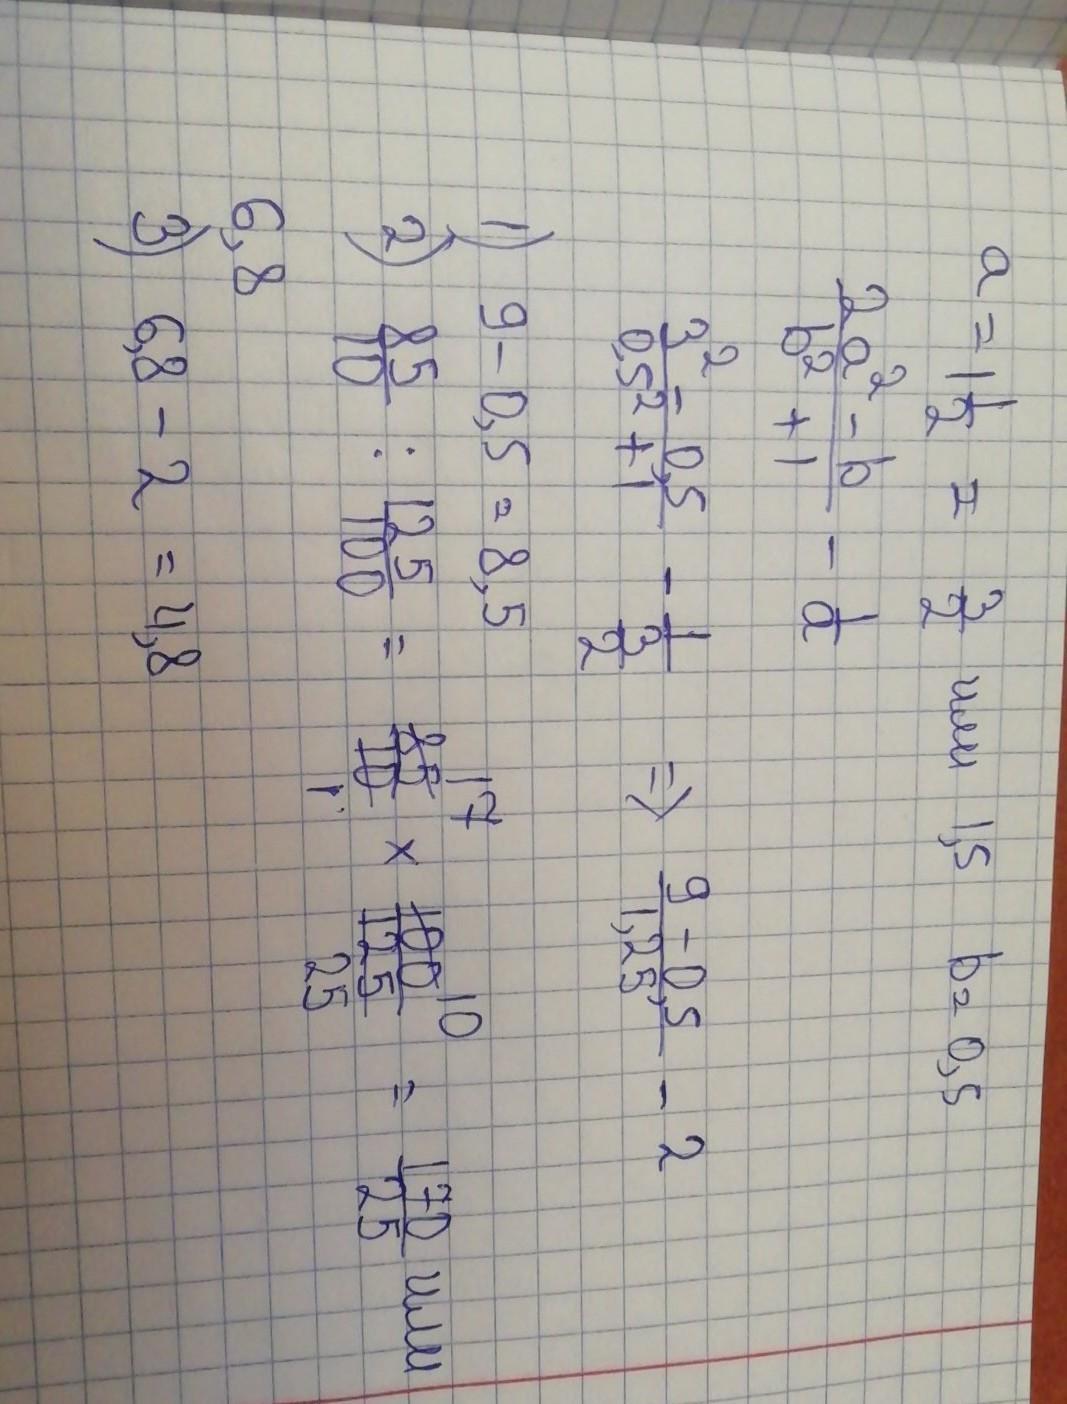 a = 1 1/2 = 3/2 или 1,5 b = 0,5
(2a² - b)/(b² + 1) - 1/a
(3² - 0,5)/(0,5² + 1) - 1/(3/2) => (9 - 0,5)/1,25 - 2
1) 9 - 0,5 = 8,5
2) 85/10 : 125/100 = 85/10 17 1 × 100/125 10 25 = 170/25 или
6,8
3) 6,8 - 2 = 4,8